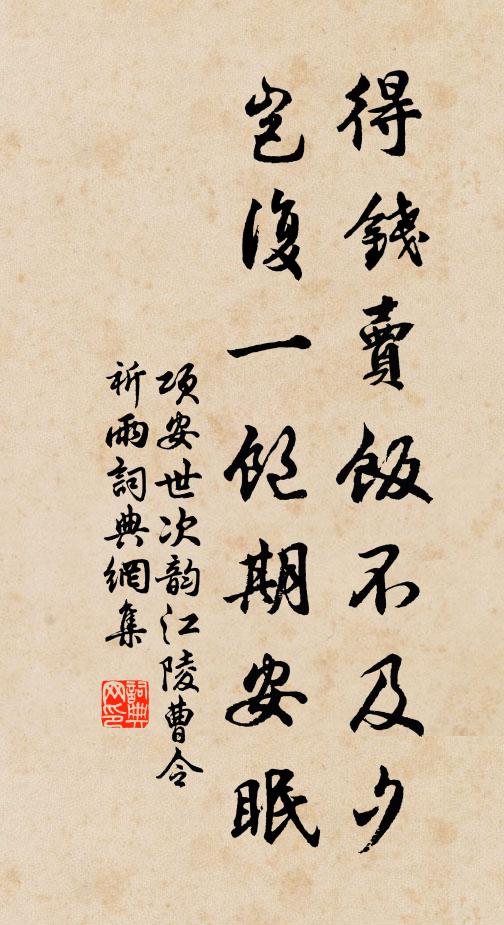 得錢賣飯不及夕
豈復一飽期安眠
項安世次韵江陵曹令
祈雨詞典網集
詞典
网印